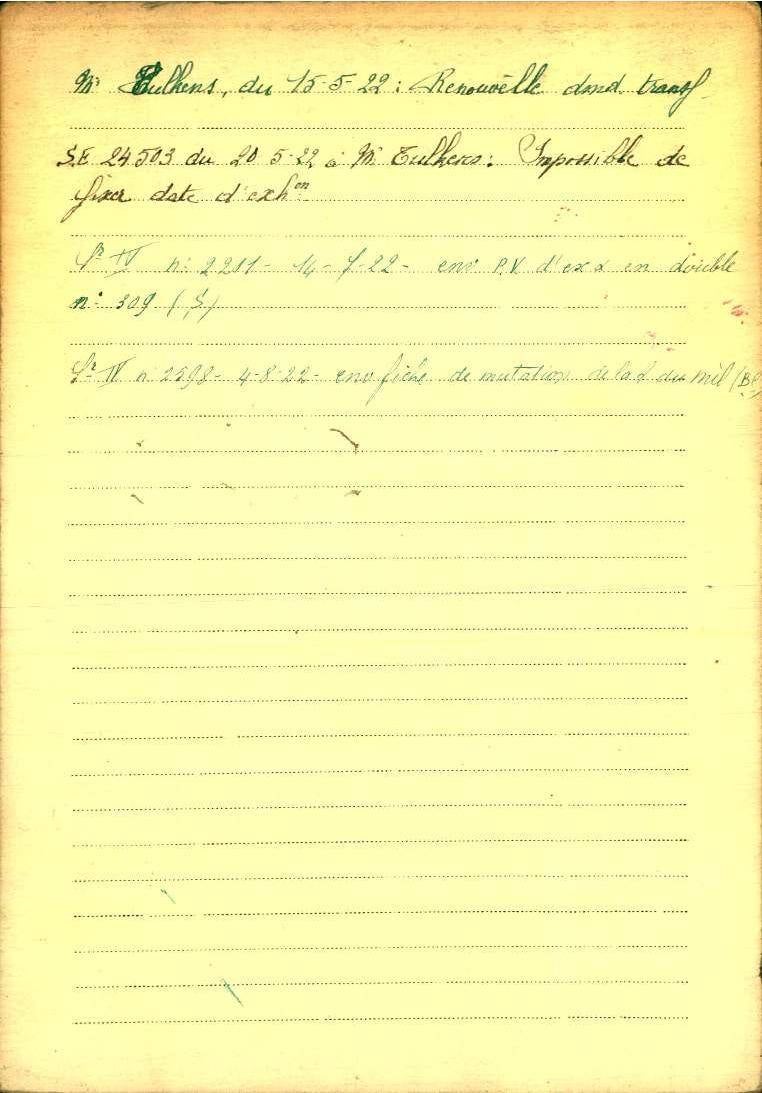 Mr Tulkens, du 15-5-22 : Renouvelle dmd. transf.
S.E. 24503 du 20-5-22 à Mr Tulkens : Impossible de
fixer date d'exhon
Sr IV n° 2211 - 14-7-22 - env P.V. d'ex en double
n° 309 (S)
Sr IV n° 2598 - 4-8-22 - env fiche de mutation de la d du mil (Bl)